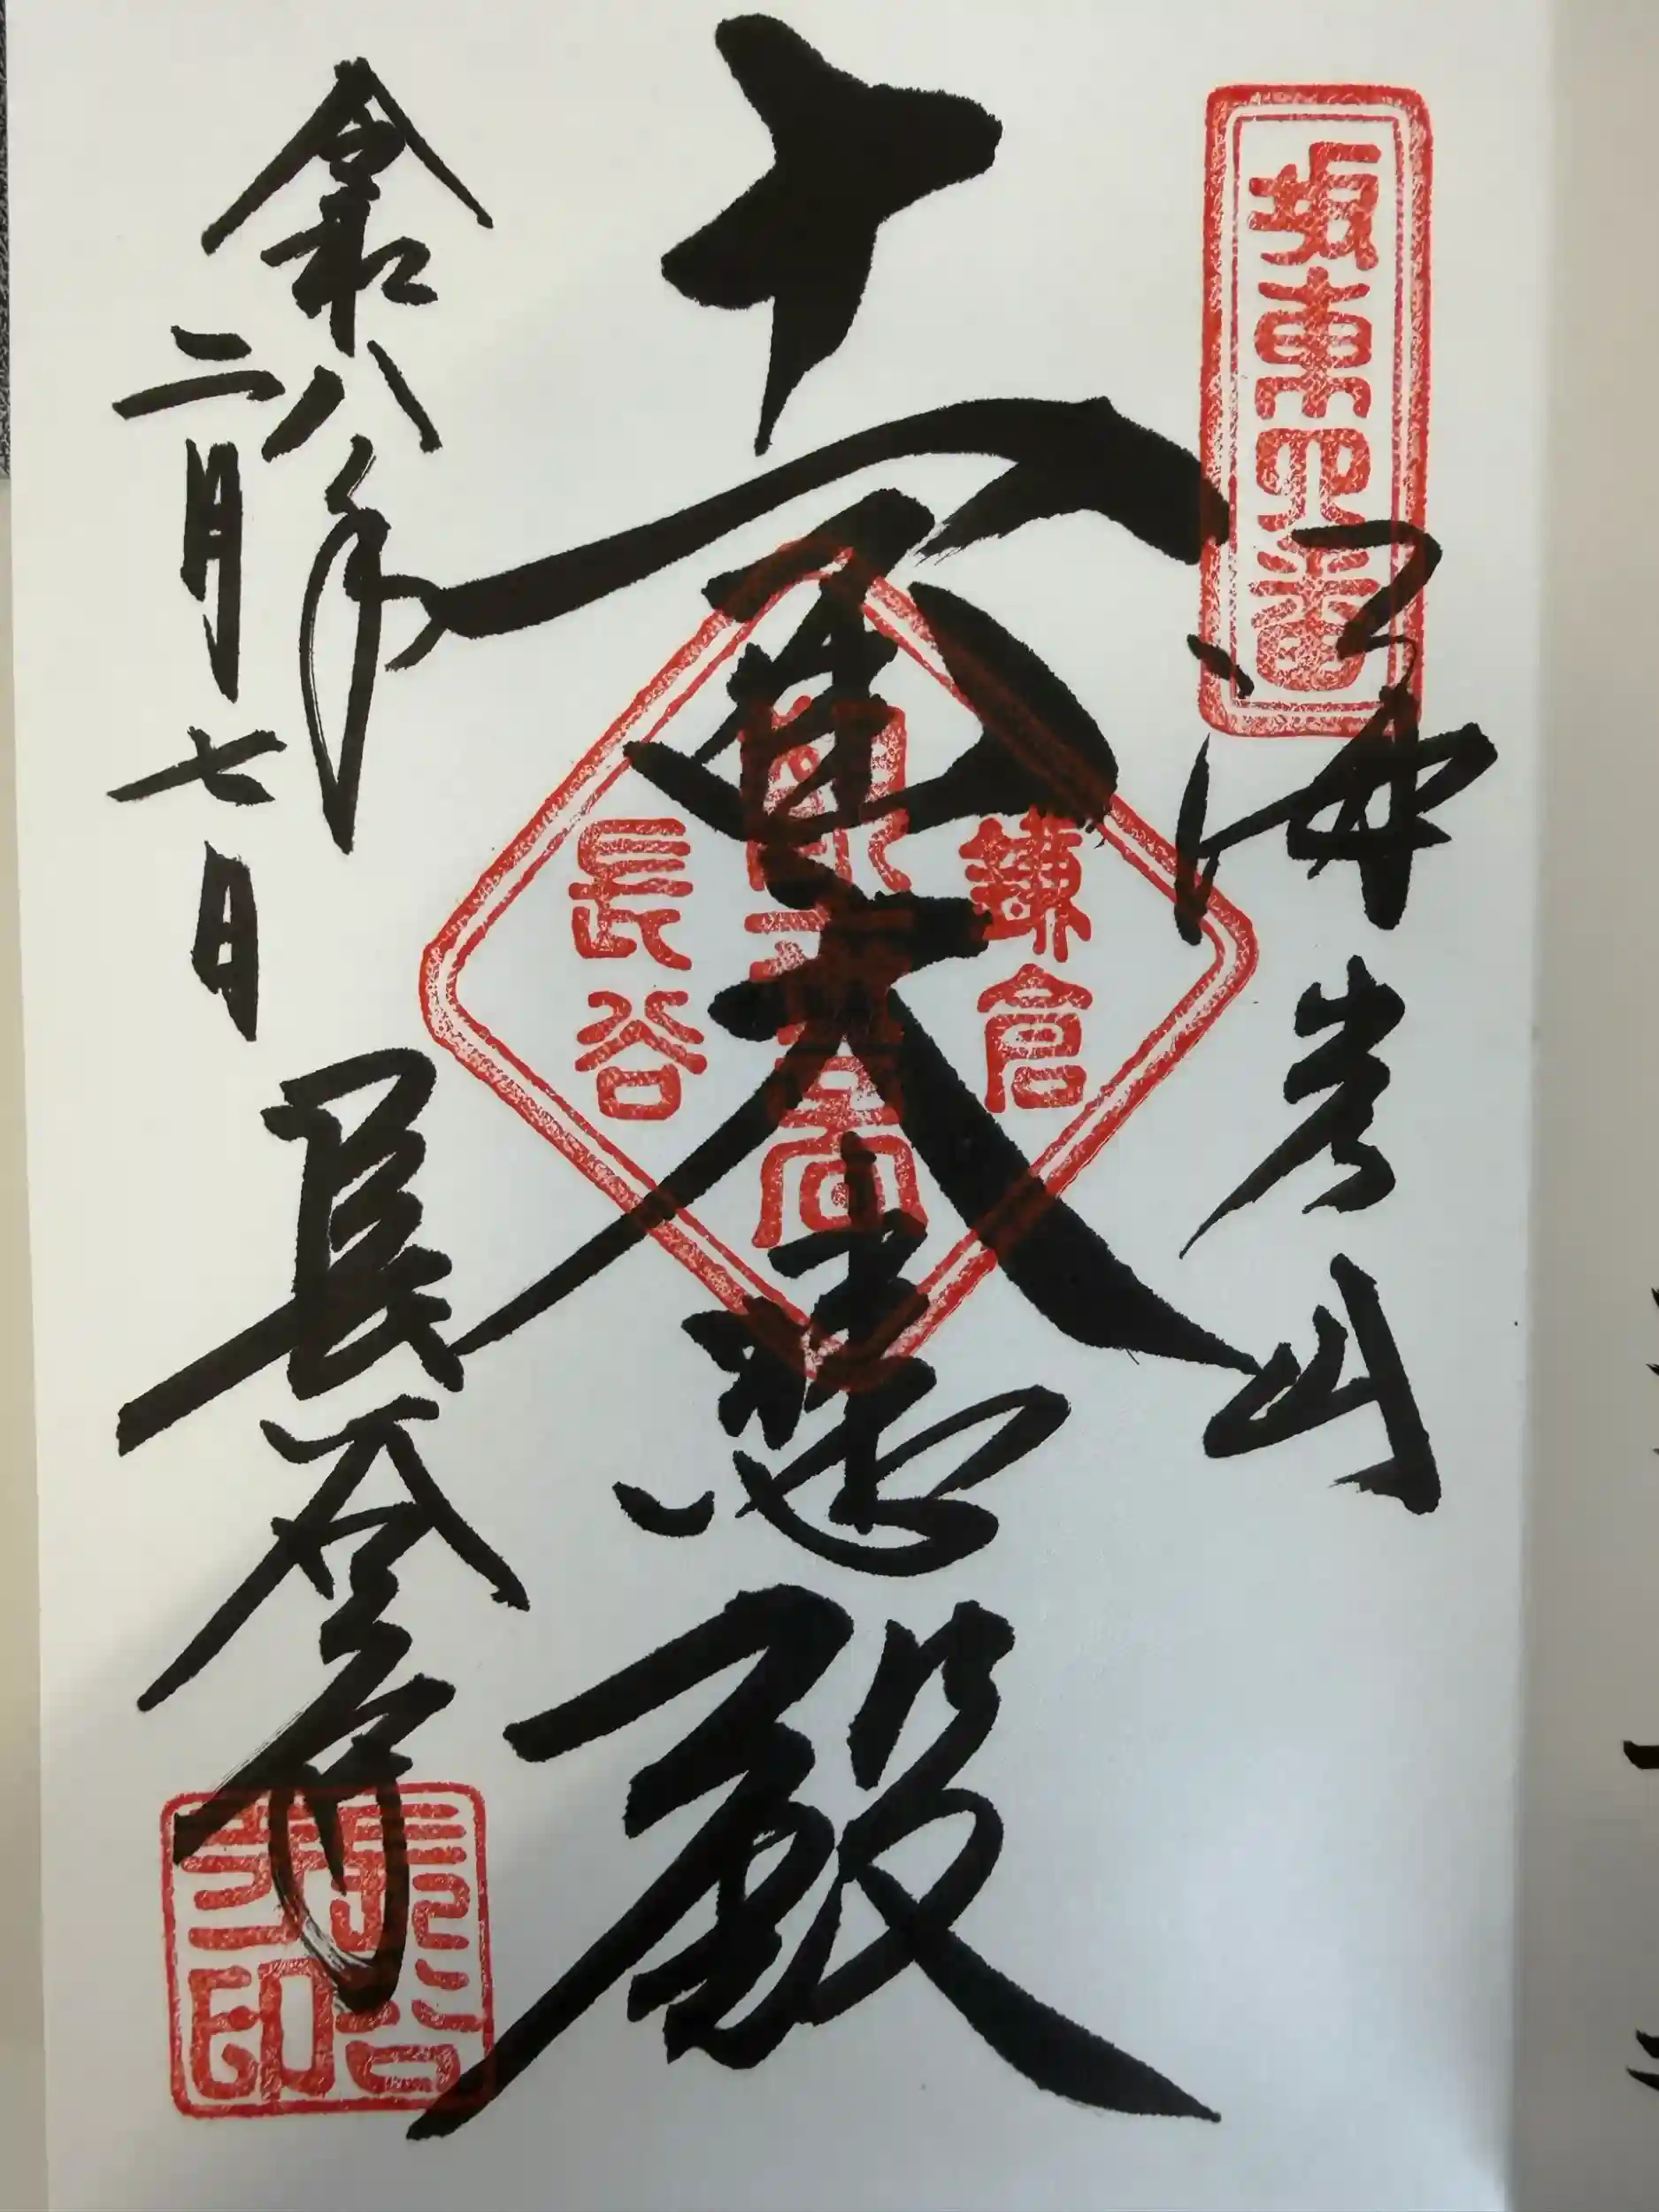 坂東四番
海光山
十一面大悲殿
鎌倉
長谷
令和八年
二月七日
長谷寺
長谷寺印